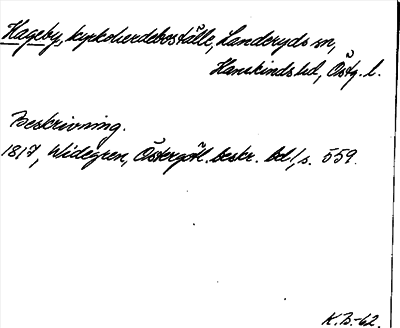 Hageby, kyrkoherdeboställe, Landeryds sn,
Hanekinds hd, Östg. l.
Beskrivning.
1817, Widegren, Östergötl. beskr. bd 1, s. 559.
K.B.-62.